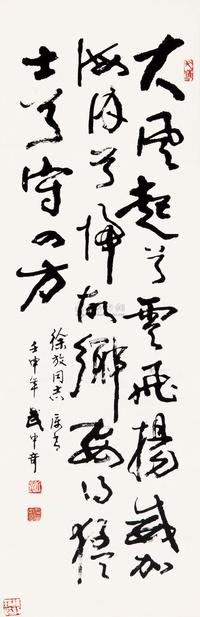 大风起兮云飞扬威加
海内兮归故乡安得猛
士兮守四方
徐放同志 属书
壬申年 武中奇